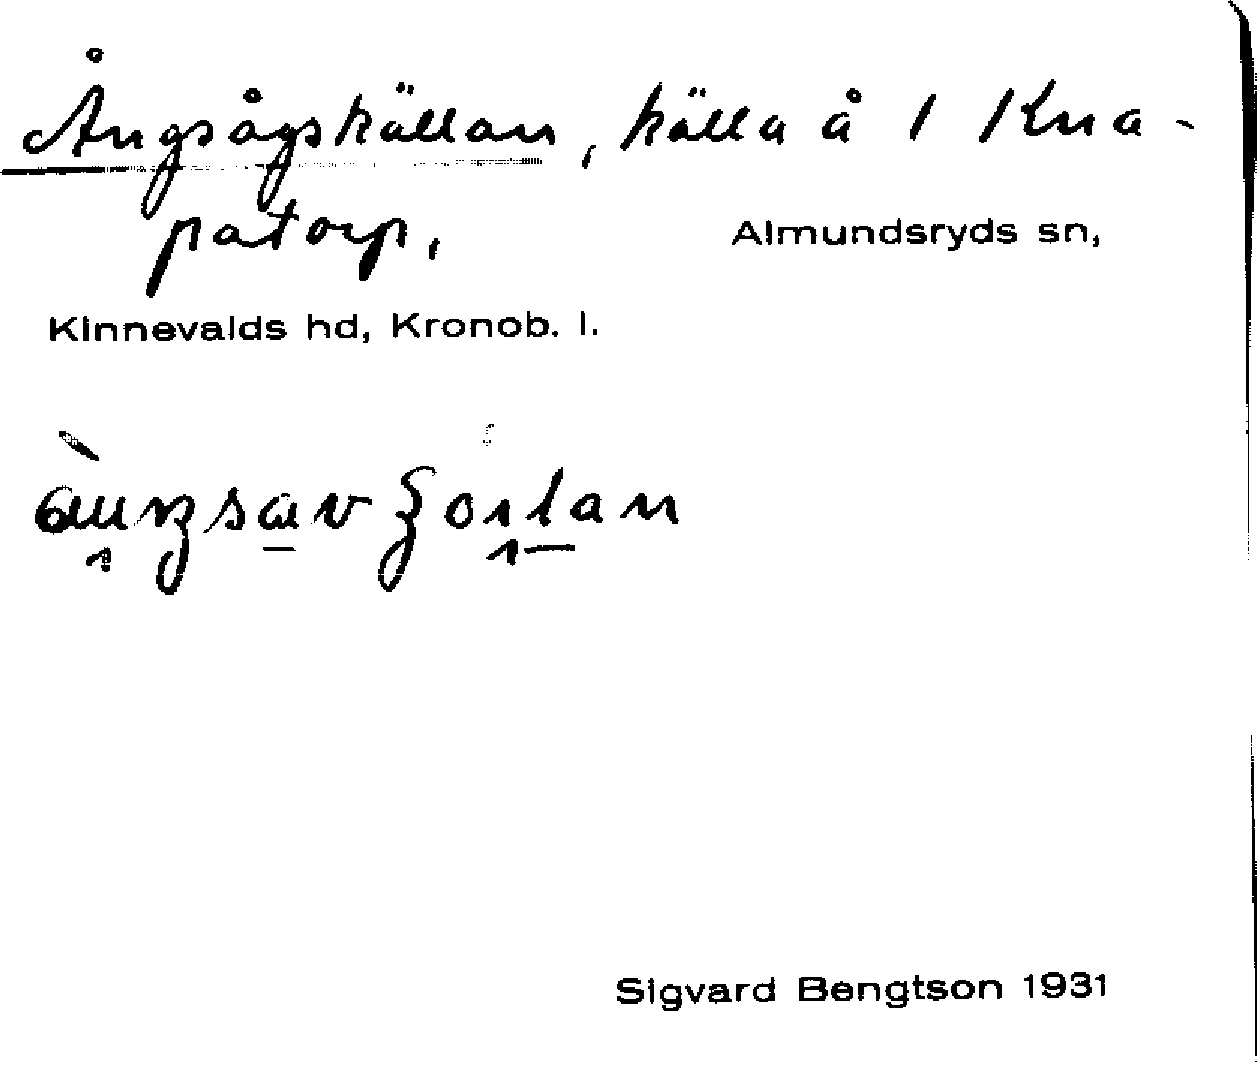 Ångsågskällan, källa å 1 Kna-
patorp, Almundsryds sn,
Kinnevalds hd, Kronob. l.
Sigvard Bengtson 1931